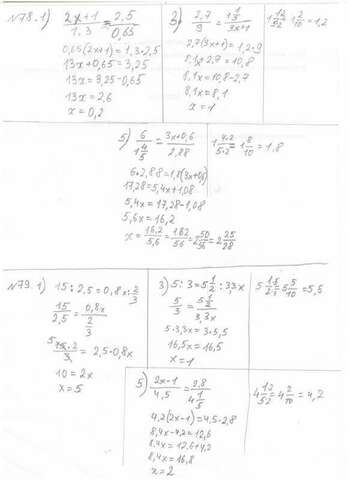 N78. 1) (2x+1)/1,3 = 2,5/0,65
0,65(2x+1)=1,3•2,5
13x+0,65=3,25
13x=3,25-0,65
13x=2,6
x=0,2
3) 2,7/9 = 1 1/5/(3x+1)
1 1•2/5•2 = 1 2/10 = 1,2
2,7(3x+1)=1,2•9
8,1x+2,7=10,8
8,1x=10,8-2,7
8,1x=8,1
x=1
5) 6/1 4/5 = (3x+0,6)/2,88
1 4•2/5•2 = 1 8/10 = 1,8
6•2,88=1,8(3x+0,6)
17,28=5,4x+1,08
5,4x=17,28-1,08
5,6x=16,2
x = 16,2/5,6 = 162/56 = 2 50/56 = 2 25/28
N79. 1) 15:2,5=0,8x:2/3
15/2,5 = 0,8x/2/3
5 15•2/3 = 2,5•0,8x
10=2x
x=5
3) 5:3=5 1/2:3,3x
5 1•5/2•5 = 5 5/10 = 5,5
5/3 = 5 1/2/3,3x
5•3,3x=3•5,5
16,5x=16,5
x=1
5) (2x-1)/4,5 = 2,8/4 1/5
4 1•2/5•2 = 4 2/10 = 4,2
4,2(2x-1)=4,5•2,8
8,4x-4,2=12,6
8,4x=12,6+4,2
8,4x=16,8
x=2